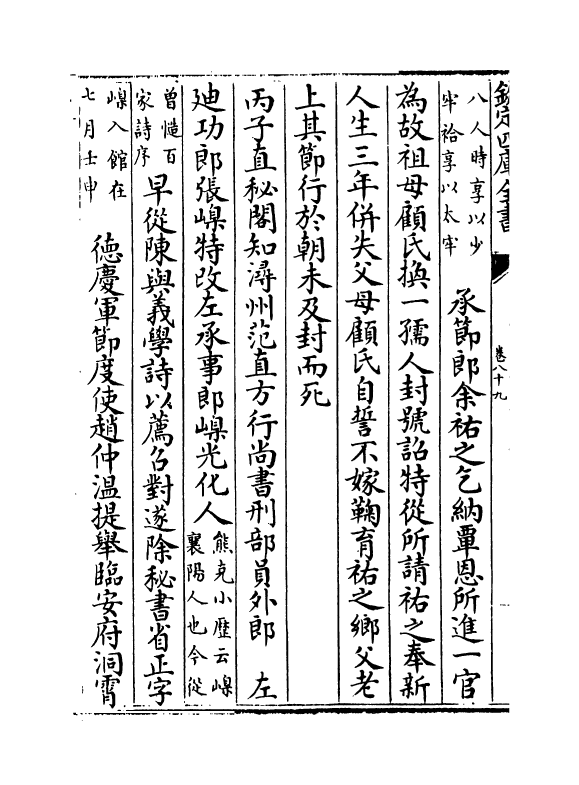 欽定四庫全書
卷八十九
八人時享以少
牢祫享以太牢
承節郎余祐之乞納覃恩所進一官
為故祖母顧氏換一孺人封號詔特從所請祐之奉新
人生三年併失父母顧氏自誓不嫁鞠育祐之鄉父老
上其節行於朝未及封而死
丙子直秘閣知潯州范直方行尚書刑部員外郎　左
廸功郎張嵲特改左承事郎嵲光化人
熊克小歴云嵲
襄陽人也今從
曾慥百
家詩序
早從陳與義學詩以薦召對遂除秘書省正字
嵲入館在
七月壬申
徳慶軍節度使趙仲温提舉臨安府洞霄